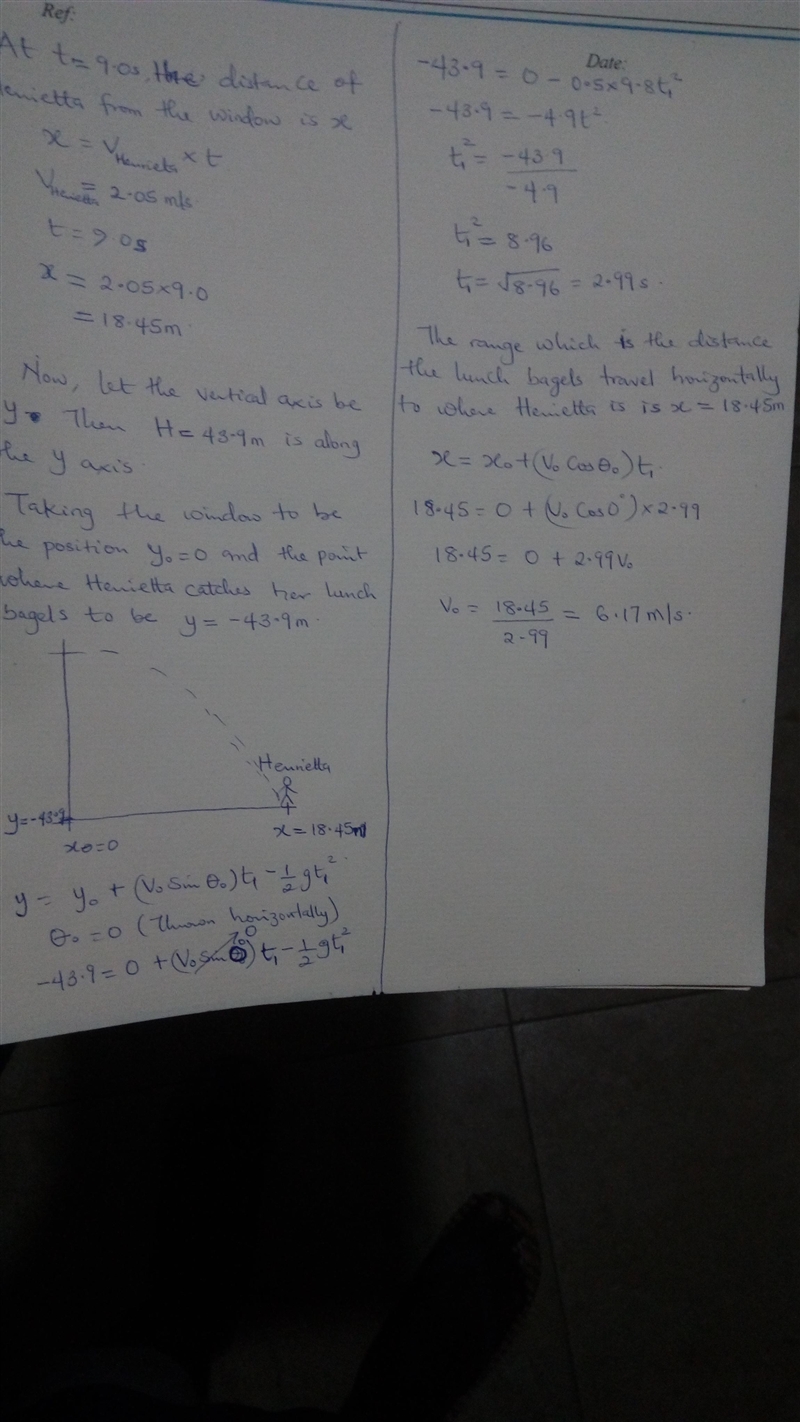 Ref:
At t=9.0s, the distance of
Henrietta from the window is x
x = V_Henrietta × t
V_Henrietta = 2.05 m/s
t = 9.0s
x = 2.05×9.0
= 18.45m
Now, let the vertical axis be
y. Then H=43.9m is along
the y axis.
Taking the window to be
the position y₀=0 and the point
where Henrietta catches her lunch
bagels to be y = -43.9m
Henrietta
y=-43.9
x₀=0
x=18.45m
y = y₀ + (V₀ Sin θ₀) t₁ - 1/2 gt₁²
θ₀ = 0 (Thrown horizontally)
0
-43.9 = 0 + (V₀ Sin 0) t₁ - 1/2 gt₁²
Date:
-43.9 = 0 - 0.5×9.8t₁²
-43.9 = -4.9t²
t₁² = -43.9 / -4.9
t₁² = 8.96
t₁ = √8.96 = 2.99s.
The range which is the distance
the lunch bagels travel horizontally
to where Henrietta is is x = 18.45m
x = x₀ + (V₀ Cos θ₀) t₁.
18.45 = 0 + (V₀ Cos 0°) × 2.99
18.45 = 0 + 2.99V₀
V₀ = 18.45 / 2.99 = 6.17 m/s.